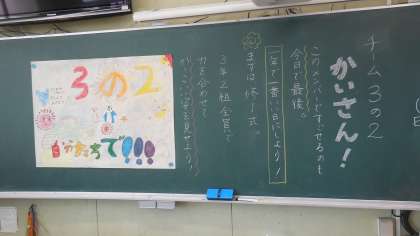 チーム3の2
かいさん!
このメンバーですごせるのも
今日で最後。
まずは修了式。
一年で一番いい日にしよう!
3年2組全員で
力を合わせて
かっこいい姿を見せよう!
3の2
かたちで!!!